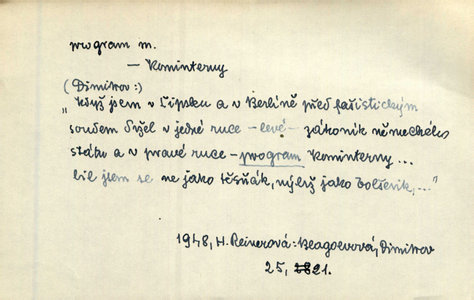 program m.
— Kominterny
(Dimitrov:)
"Když jsem v Lipsku a v Berlíně před fašistickým
soudem držel v jedné ruce – levé – zákoník německého
státu a v pravé ruce – program Kominterny ...
bil jsem se ne jako těsňák, nýbrž jako bolševik, ..."
1948, H. Reinerová: Blagoevová, Dimitrov
25, 21.